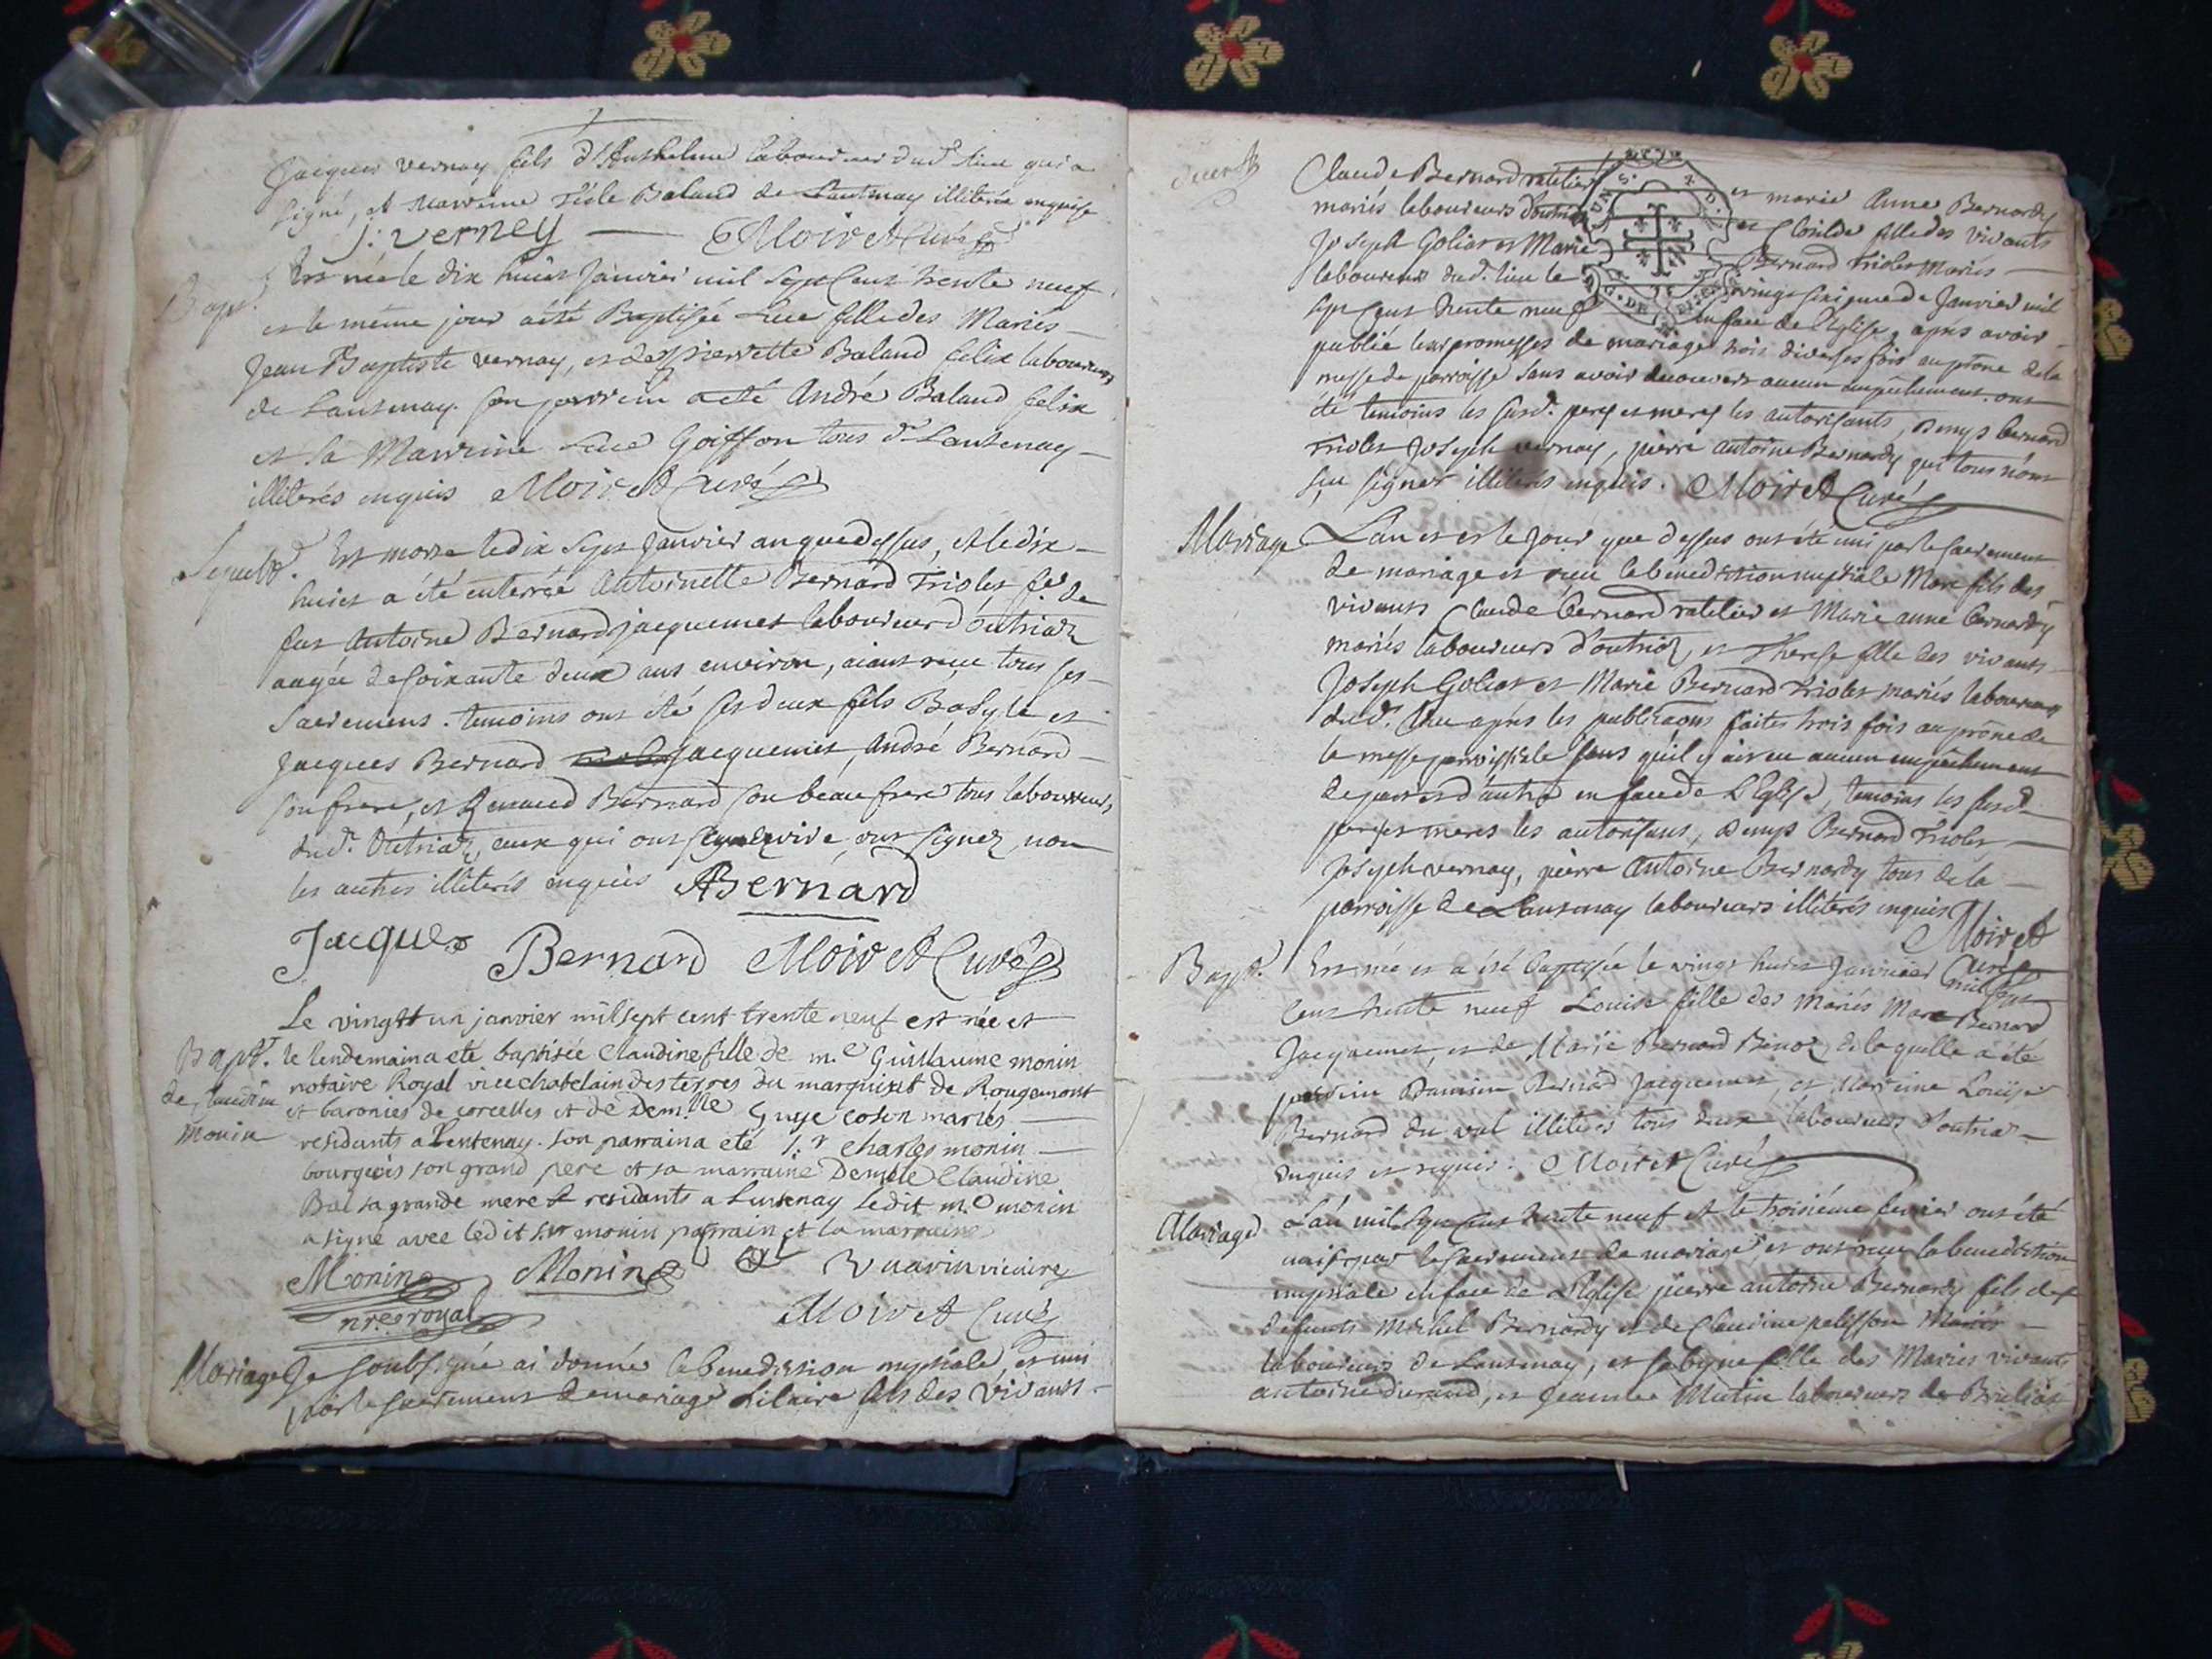 Jacques vernay fils d'Anthelme laboureur dud. lieu qui a
signé, et Marreine Baland de Lantenay illiterée enquise
J: verney Moiret Curé
Bapt. Est née le dix huict Janvier mil sept cent trente neuf
et le même jour a été Baptisée Luce fille des Mariés
Jean Baptiste vernay, et de pierrette Baland felix laboureurs
de Lantenay. son parrein a été André Baland felix
et la Marreine Luce Goiffon tous de Lantenay
illiterés enquis Moiret Curé
Sepult. Est morte le dix sept Janvier an que dessus, et le dix
huict a été enterrée Antoinette Bernard Triolet f.e de
feu Antoine Bernard jacquemet laboureur d'outriaz
aagée de soixante deux ans environ, aiant reçu tous ses
sacremens. temoins ont été ses deux fils Basyle et
Jacques Bernard Jacquemet, André Bernard
son frere, et Renaud Bernard son beau frere tous laboureurs
dud. Outriaz, ceux qui ont sçu ecrire ont signez, non
les autres illiterés enquis ABernard
Jacques Bernard Moiret Curé
Le vingtt un janvier mil sept cent trente neuf est née et
Bapt. le lendemain a eté baptisée Claudine fille de m.e Guillaume monin
de Claudine notaire Royal vice chatelain des terres du marquisat de Rougemont
et baronies de corcelles et de Dem.lle Guye cosen mariés
monin residants a Lentenay. son parrain a été s.r charles monin
bourgeois son grand pere et sa marraine Demlle Claudine
Bal sa grande mere residants a Lentenay Ledit m.e monin
a signé avec ledit sr monin parrain et la marraine
Monin Monin Vuarin vicaire
nre royal Moiret Curé
Mariage Je soubsigné ai donné la benediction nuptiale, et uni
par le sacrement de mariage hilaire fils des vivants
Claude Bernard ratelier et marie Anne Bernardy
mariés laboureurs d'outriaz et Clotilde fille des vivants
Joseph Goliot et Marie Bernard Triolet Mariés
laboureurs dud. lieu le vingt sixieme de Janvier mil
sept cent trente neuf en face de l'Eglise, après avoir
publié leur promesses de mariage trois diverses fois au prône de la
messe de parroisse sans avoir decouvert aucun empêchement. ont
été temoins les susd. peres et meres les autorisants, Denys bernard
Triolet Joseph vernay, pierre antoine Bernardy qui tous n'ont
sçu signer illiterés enquis. Moiret Curé
Mariage L'an et le jour que dessus ont été uni par le sacrement
de mariage et reçu la benediction nuptiale Marc fils des
vivants Claude bernard ratelier et Marie anne bernardy
mariés laboureurs d'outriaz, et Therese fille des vivants
Joseph Goliot et Marie Bernard Triolet mariés laboureurs
dud. lieu après les publications faites trois fois au prône de
la messe parroissiale sans qu'il y ait eu aucun empêchement
de part et d'autre en face de L'Eglise, temoins les susd.
peres et meres les autorisans, Denys Bernard Triolet
Joseph vernay, pierre Antoine Bernardy tous de la
parroisse de Lantenay laboureurs illiterés enquis Moiret
Bapt. Est née et a été baptisée le vingt huict Janvier mil sept Curé
cent trente neuf Louise fille des mariés Marc Bernard
Jacquemet, et de Marie Bernard Binoz, de laquelle a été
parrein Damien Bernard Jacquemet, et Marreine Louïse
Bernard du val illiterés tous deux laboureurs d'outriaz
enquis et requis. Moiret Curé
Mariage L'an mil sept cent trente neuf et le troisiéme fevrier ont été
unis par le sacrement de mariage et ont reçu la benediction
nuptiale en face de L'Eglise pierre antoine Bernardy fils des
defunts Michel Bernardy et de Claudine pelisson Mariés
laboureurs de Lantenay, et fille des Mariés vivants
antoine durand, et Jeanne Mutin laboureurs de